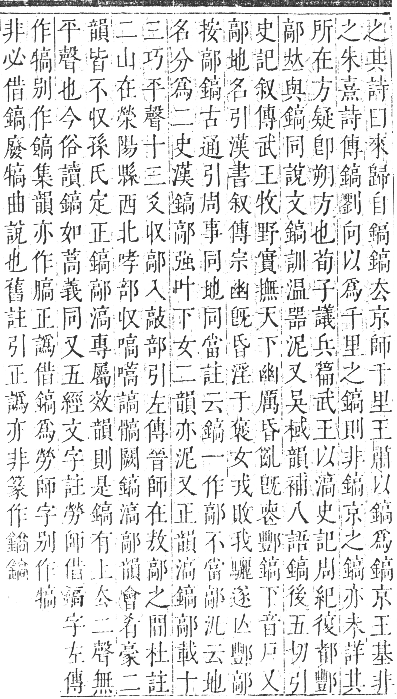 之其詩曰來歸自鎬鎬去京師千里王肅以鎬爲鎬京王基非
之朱熹詩傳鎬劉向以爲千里之鎬則非鎬京之鎬亦未詳其
所在方疑卽朔方也荀子議兵篇武王以滈史記周紀復都酆
鄗𠀤與鎬同說文鎬訓温器泥又吳棫韻補八語鎬後五切引
史記叙傳武王牧野實撫天下幽厲昏亂旣喪酆鎬下音戸又
鄗地名引漢書叙傳宗幽旣昏淫于褒女戎敗我驪遂亡酆鄗
按鄗鎬古通引周事同地同當註云鎬一作鄗不當鄗汎云地
名分爲二史漢鎬鄗強叶下女二韻亦泥又正韻滈鎬鄗載十
三巧平聲十三爻收鄗入敲部引左傳晉師在敖鄗之閒杜註
二山在滎陽縣西北哮部收嗃嚆謞髇闕鎬滈鄗韻會肴豪二
韻皆不收孫氏定正鎬鄗滈專屬效韻則是鎬有上去二聲無
平聲也今俗讀鎬如蒿義同又五經文字註勞師借鎬字左傳
作犒別作鎬集韻亦作膏正譌借鎬爲勞師字別作犒
非必借鎬廢犒曲說也舊註引正譌亦非篆作